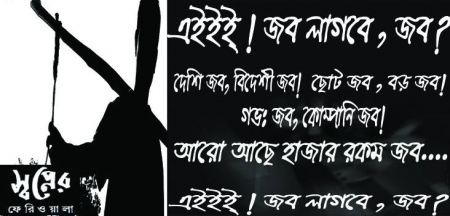 এইইই! জব লাগবে, জব?
দেশি জব, বিদেশী জব! ছোট জব, বড় জব!
গভঃ জব, কোম্পানি জব!
আরো আছে হাজার রকম জব....
এইইই! জব লাগবে, জব?
স্বপ্নের
ফেরিওয়ালা